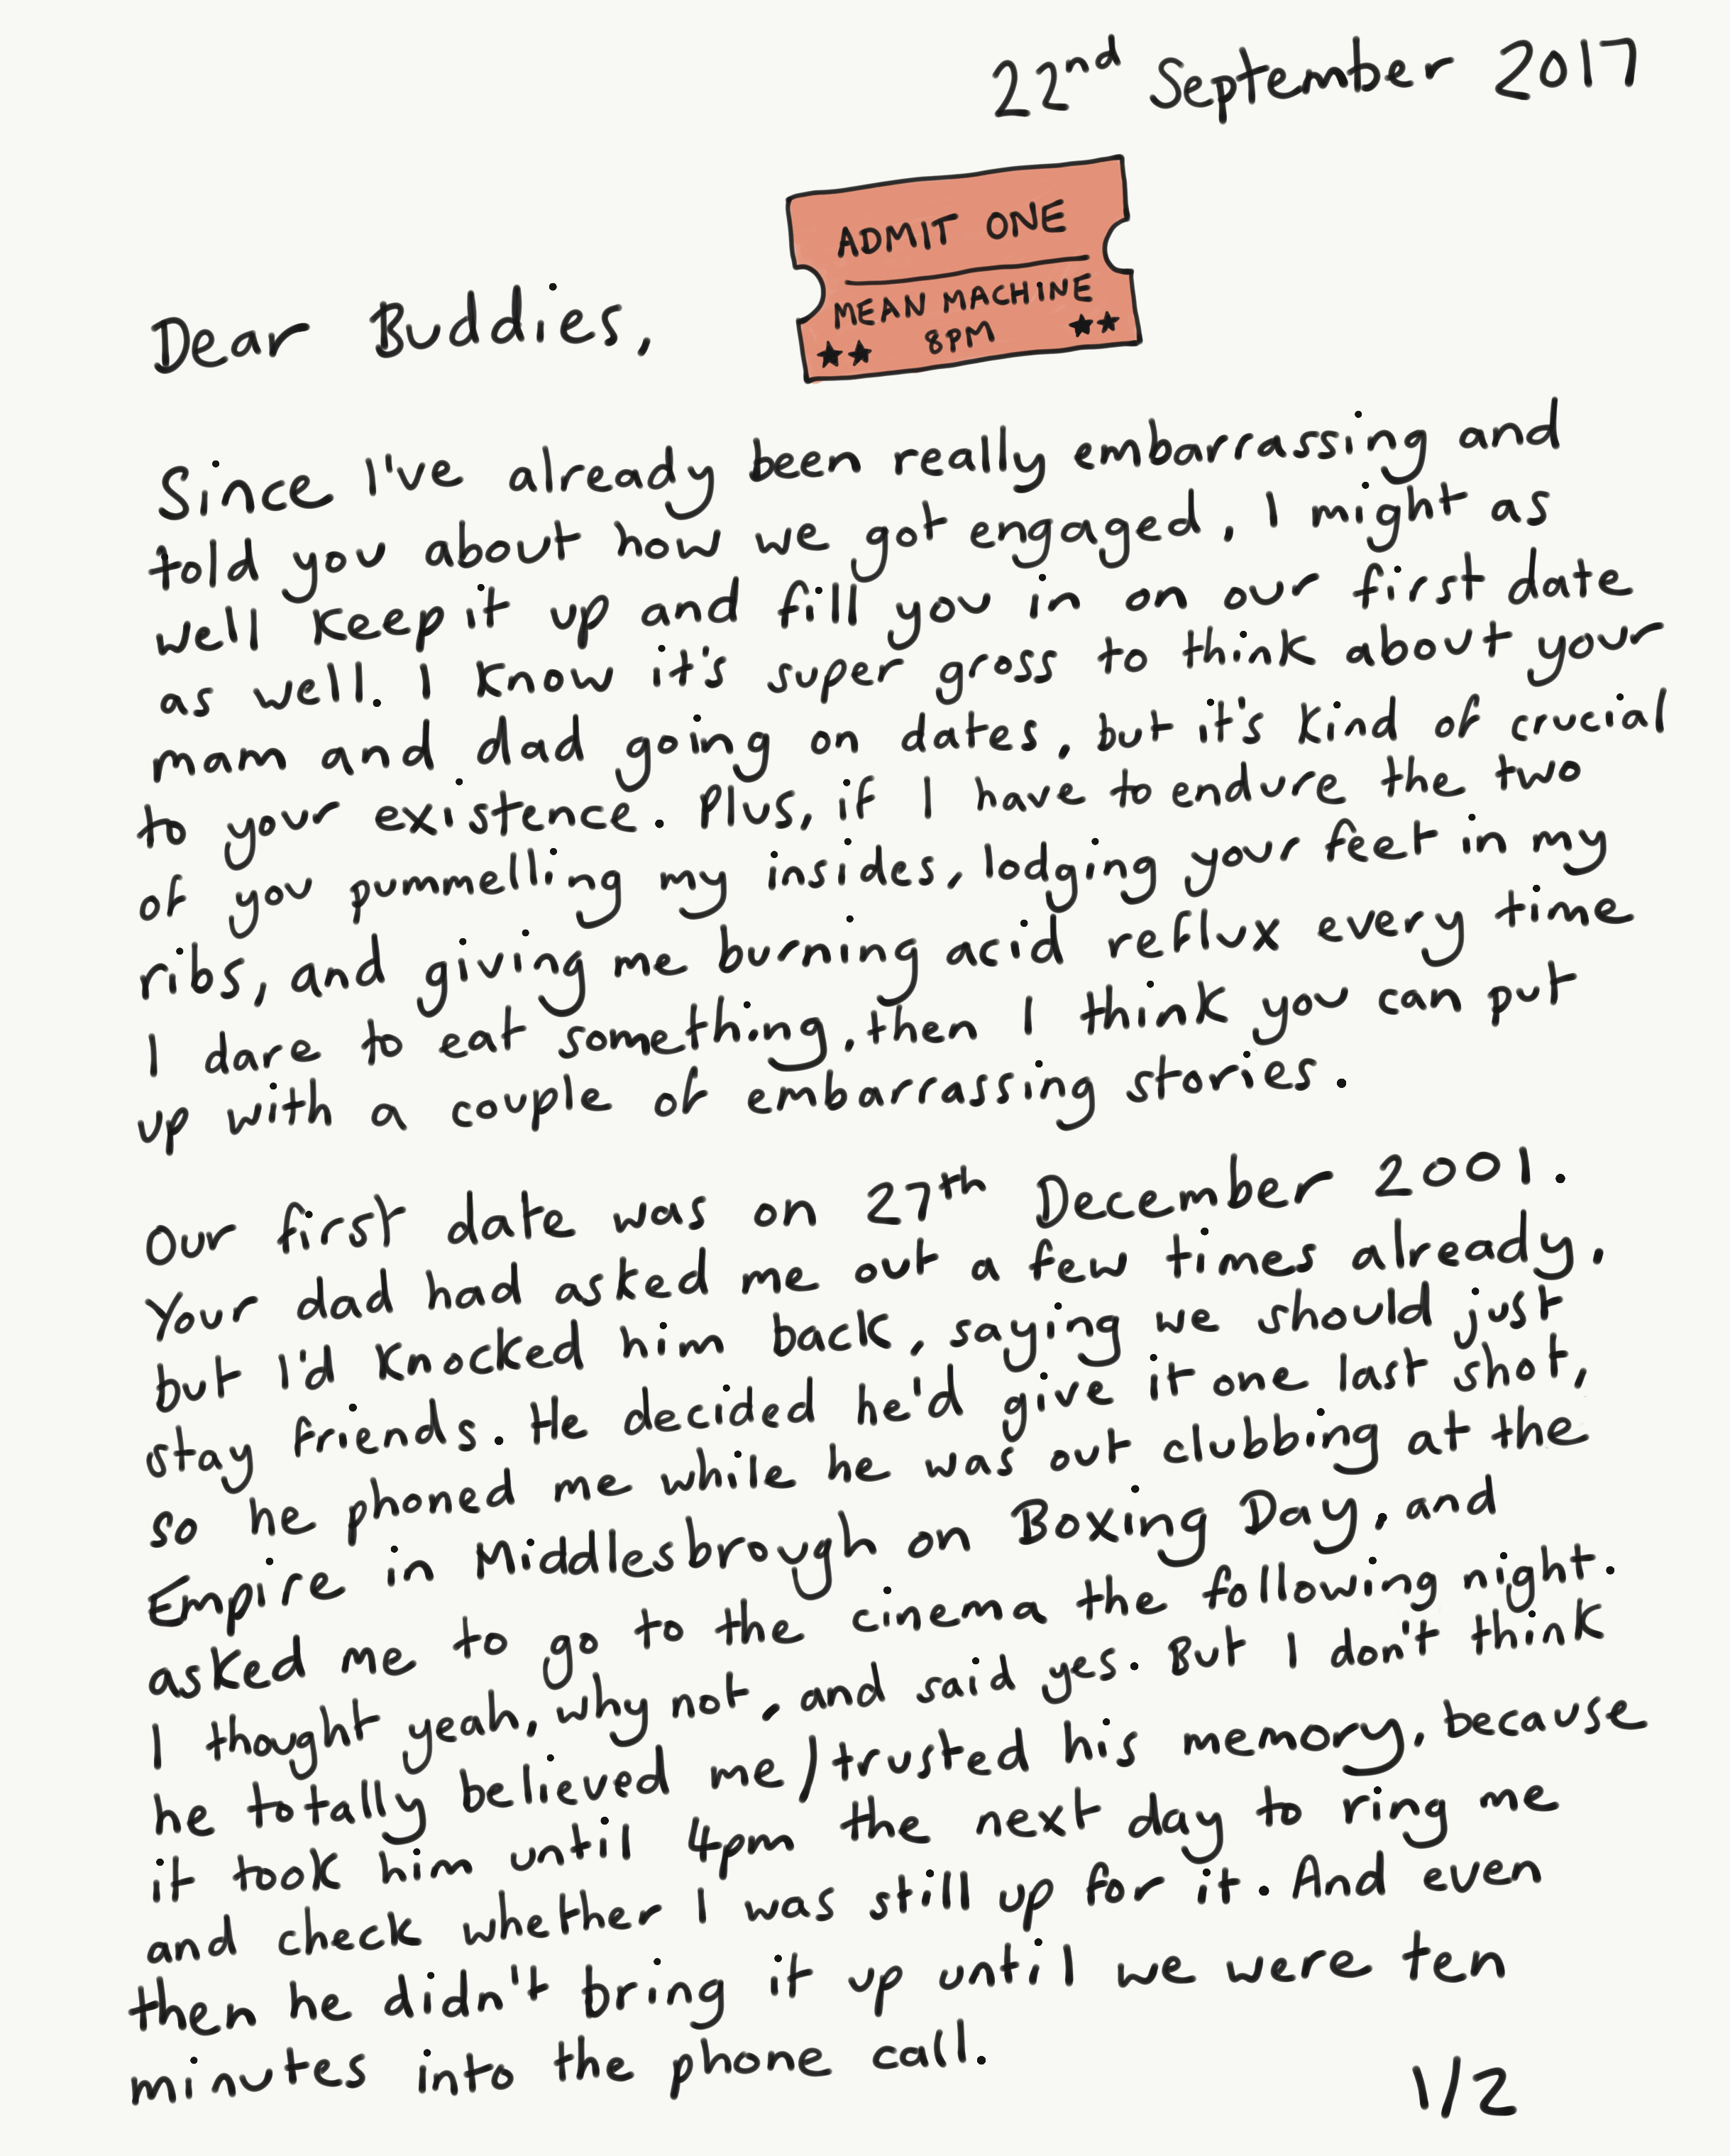 22nd September 2017
ADMIT ONE
MEAN MACHINE
8PM
Dear Buddies,
Since I've already been really embarrassing and
told you about how we got engaged, I might as
well keep it up and fill you in on our first date
as well. I know it's super gross to think about your
mam and dad going on dates, but it's kind of crucial
to your existence. Plus, if I have to endure the two
of you pummelling my insides, lodging your feet in my
ribs, and giving me burning acid reflux every time
I dare to eat something, then I think you can put
up with a couple of embarrassing stories.
Our first date was on 27th December 2001.
Your dad had asked me out a few times already,
but I'd knocked him back, saying we should just
stay friends. He decided he'd give it one last shot,
so he phoned me while he was out clubbing at the
Empire in Middlesbrough on Boxing Day, and
asked me to go to the cinema the following night.
I thought yeah, why not, and said yes. But I don't think
he totally believed me/trusted his memory, because
it took him until 4pm the next day to ring me
and check whether I was still up for it. And even
then he didn't bring it up until we were ten
minutes into the phone call.
1/2